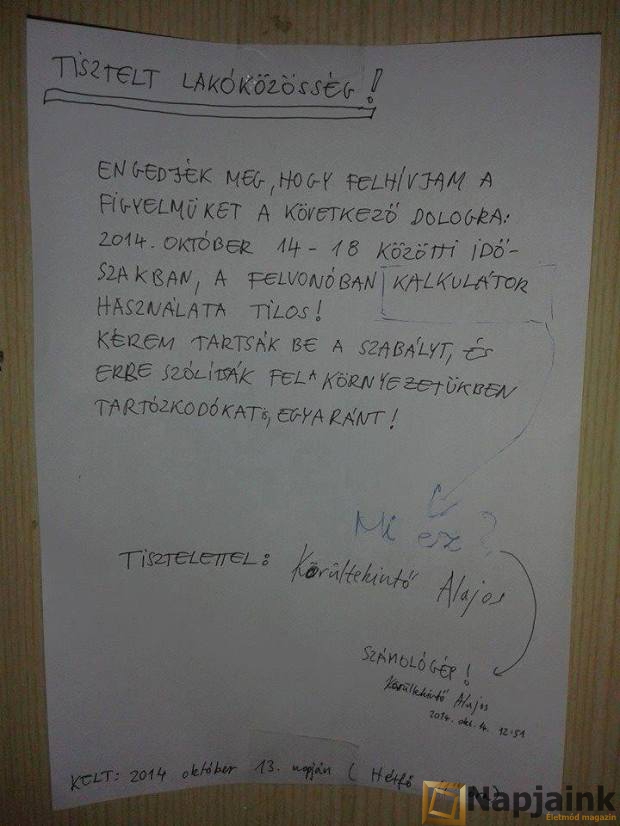 TISZTELT LAKÓKÖZÖSSÉG!
ENGEDJÉK MEG, HOGY FELHÍVJAM A
FIGYELMÜKET A KÖVETKEZŐ DOLOGRA:
2014. OKTÓBER 14-18 KÖZÖTTI IDŐ-
SZAKBAN, A FELVONÓBAN KALKULÁTOR
HASZNÁLATA TILOS!
KÉREM TARTSÁK BE A SZABÁLYT, ÉS
ERRE SZÓLÍTSÁK FEL A KÖRNYEZETÜKBEN
TARTÓZKODÓKAT IS, EGYARÁNT!
Mi esz?
TISZTELETTEL: Körültekintő Alajos
SZÁMOLÓGÉP!
Körültekintő Alajos
2014. okt. 14. 12:51
KELT: 2014 október 13. napján ( Hétfő
Napjaink
Életmód magazin